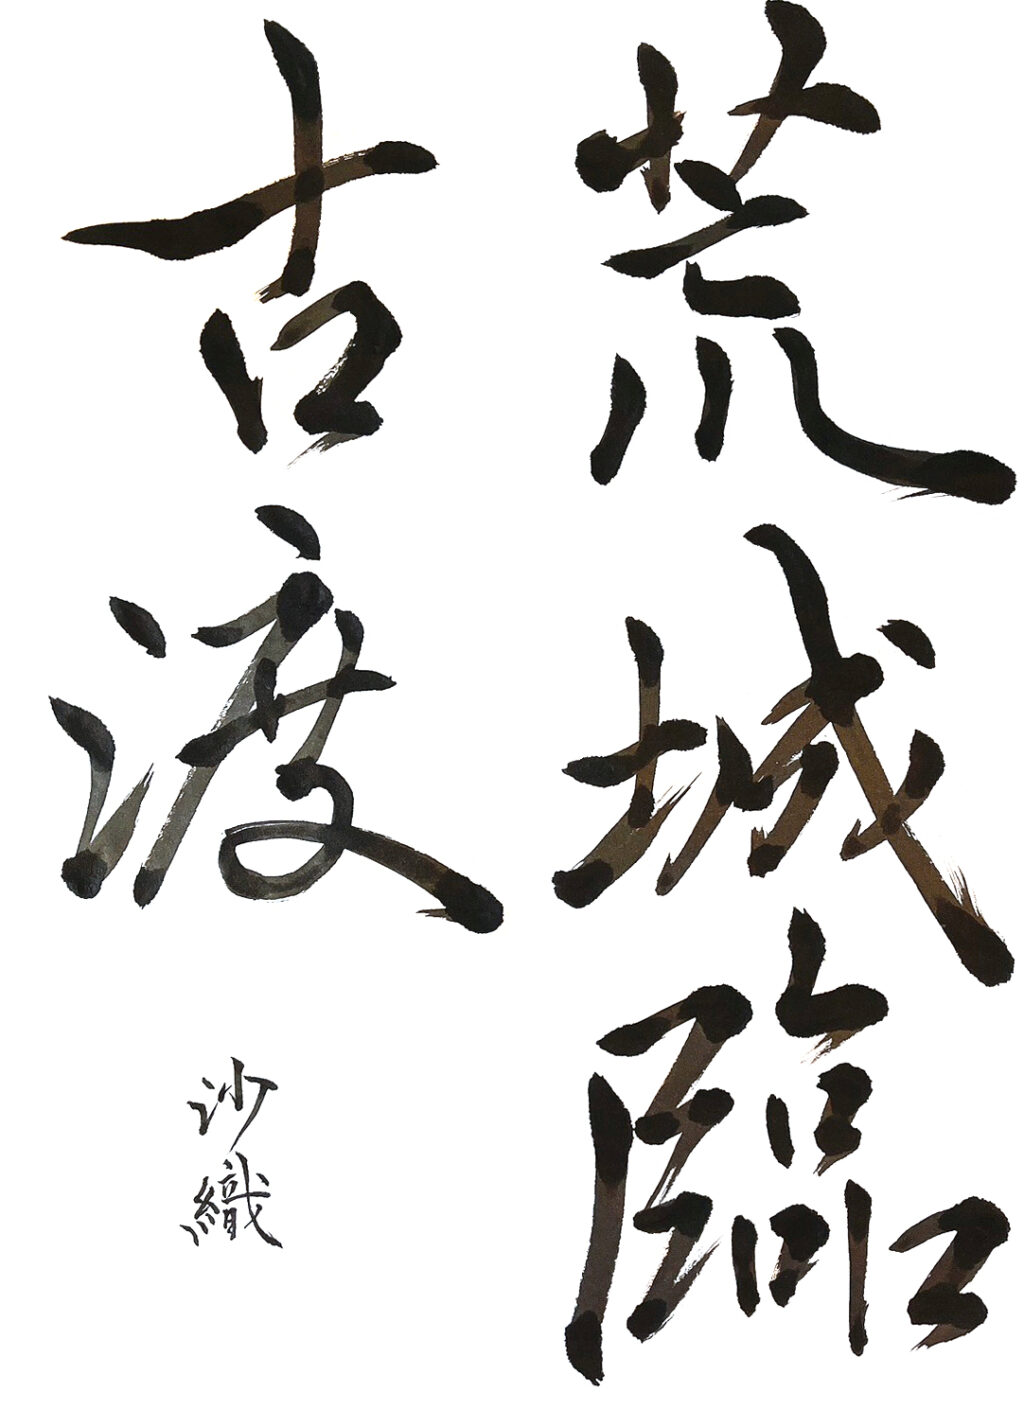 荒城臨
古渡
沙織